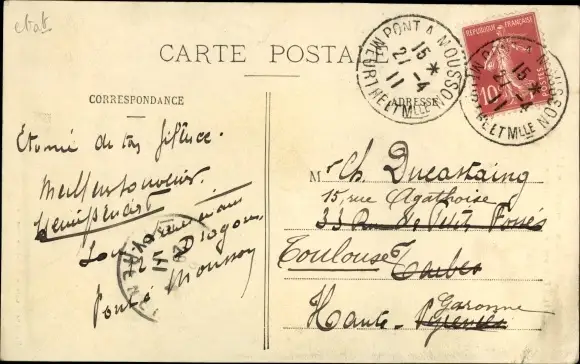 état
CARTE POSTALE
CORRESPONDANCE
ADRESSE
Etonné de ton silence.
Meilleur souvenir.
Dragons
Pont à Mousson
RÉPUBLIQUE FRANÇAISE
10
PONT A MOUSSON
15 *
21-4
11
MEURTHE ET MLLE
PONT A MOUSSON
15 *
21-4
11
MEURTHE ET MLLE
Mr Ch. Ducastaing
15, rue Agathoise
33 Rue des Petits Fossés
Toulouse Tarbes
Haute-Garonne
Pyrénées